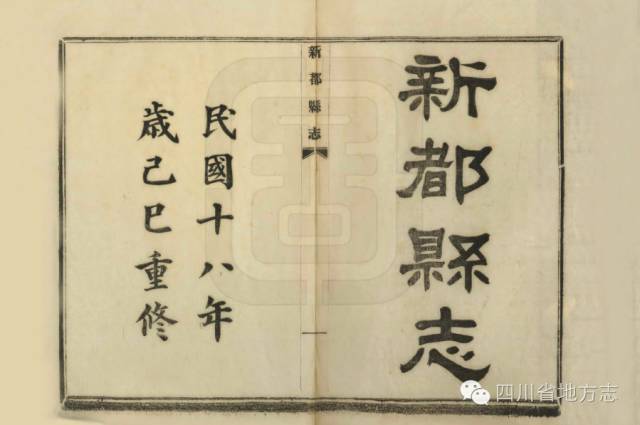 新都縣志
新都縣志
一
民國十八年
歳己巳重修
四川省地方志